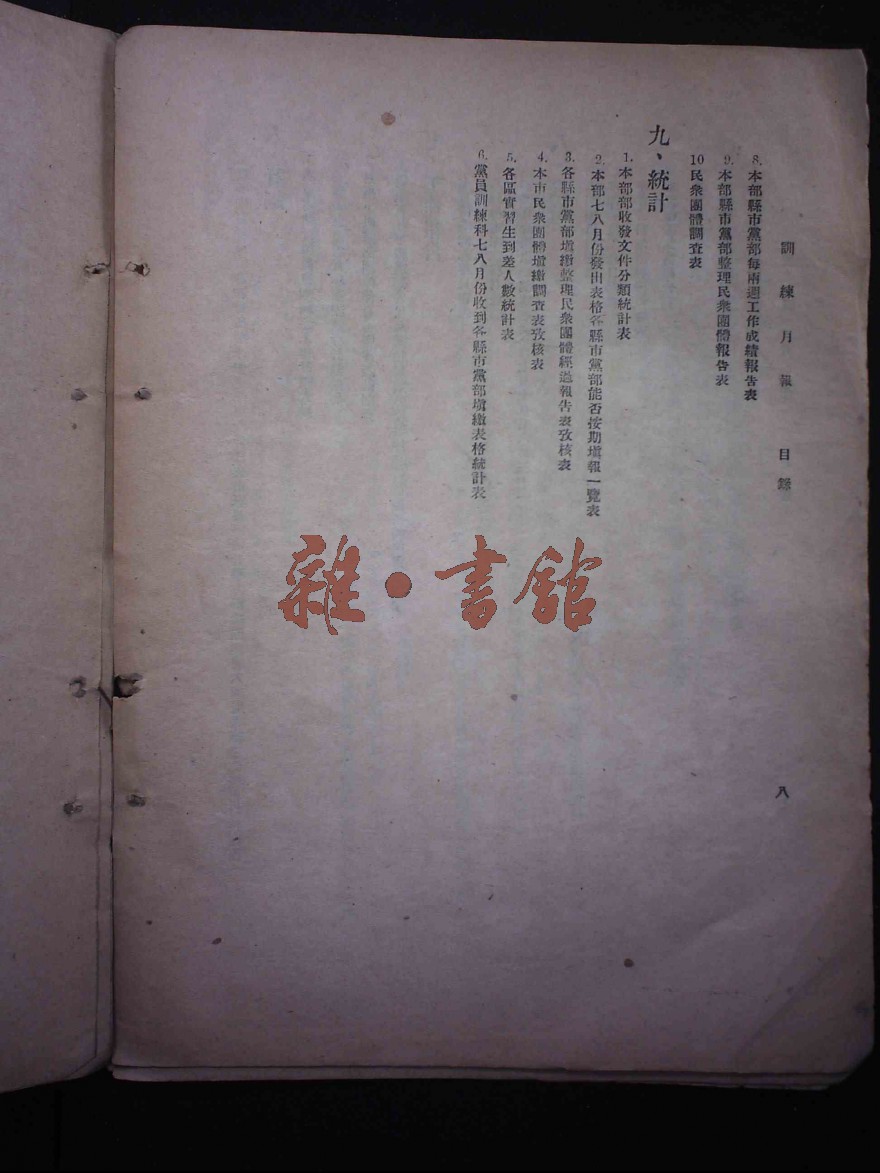 訓練月報 目錄 八
8. 本部縣市黨部每兩週工作成績報告表
9. 本部縣市黨部整理民衆團體報告表
10 民衆團體調查表
九、統計
1. 本部部收發文件分類統計表
2. 本部七八月份發出表格各縣市黨部能否按期塡報一覽表
3. 各縣市黨部塡繳整理民衆團體經過報告表攷核表
4. 本市民衆團體塡繳調查表攷核表
5. 各區實習生到差人數統計表
6. 黨員訓練科七八月份收到各縣市黨部塡繳表格統計表
雜・書館